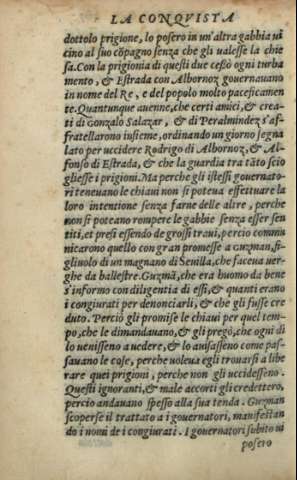 LA CONQVISTA
dottolo prigione, lo posero in un'altra gabbia ui
cino al suo cõpagno senza che gli ualesse la chie
sa. Con la prigionia di questi due cessò ogni turba
mento, & Estrada con Albornoz gouernauano
in nome del Re, e del popolo molto pacificamen
te. Quantunque auenne, che certi amici, & crea-
ti di Gonzalo Salazar, & di Peralmindez s'af-
fratellarono insieme, ordinando un giorno segna
lato per uccidere Rodrigo di Albornoz, & Al-
fonso di Estrada, & che la guardia tra tãto scio
gliesse i prigioni. Ma perche gli istessi gouernato-
ri teneuano le chiaui non si poteua effettuare la
loro intentione senza farne delle altre, perche
non si poteano rompere le gabbie senza esser sen
titi, et presi essendo de grossi traui, percio commu
nicarono quello con gran promesse a Guzman, fi-
gliuolo di un magnano di Seuilla, che faceua uer-
ghe da ballestre. Guzmã, che era huomo da bene
s'informo con diligentia di essi, & quanti erano
i congiurati per denonciarli, & che gli fusse cre
duto. Perciò gli promise le chiaui per quel tem-
po, che le dimandauano, & gli pregò, che ogni dì
lo uenissero a uedere, & lo auisassero come pas-
sauano le cose, perche uoleua egli trouarsi a libe
rare quei prigioni, perche non gli uccidesseno.
Questi ignoranti, & male accorti gli credettero,
percio andauano spesso alla sua tenda. Guzman
scoperse il trattato a i gouernatori, manifestan
do i nomi de i congiurati. I gouernatori subito ui
posero